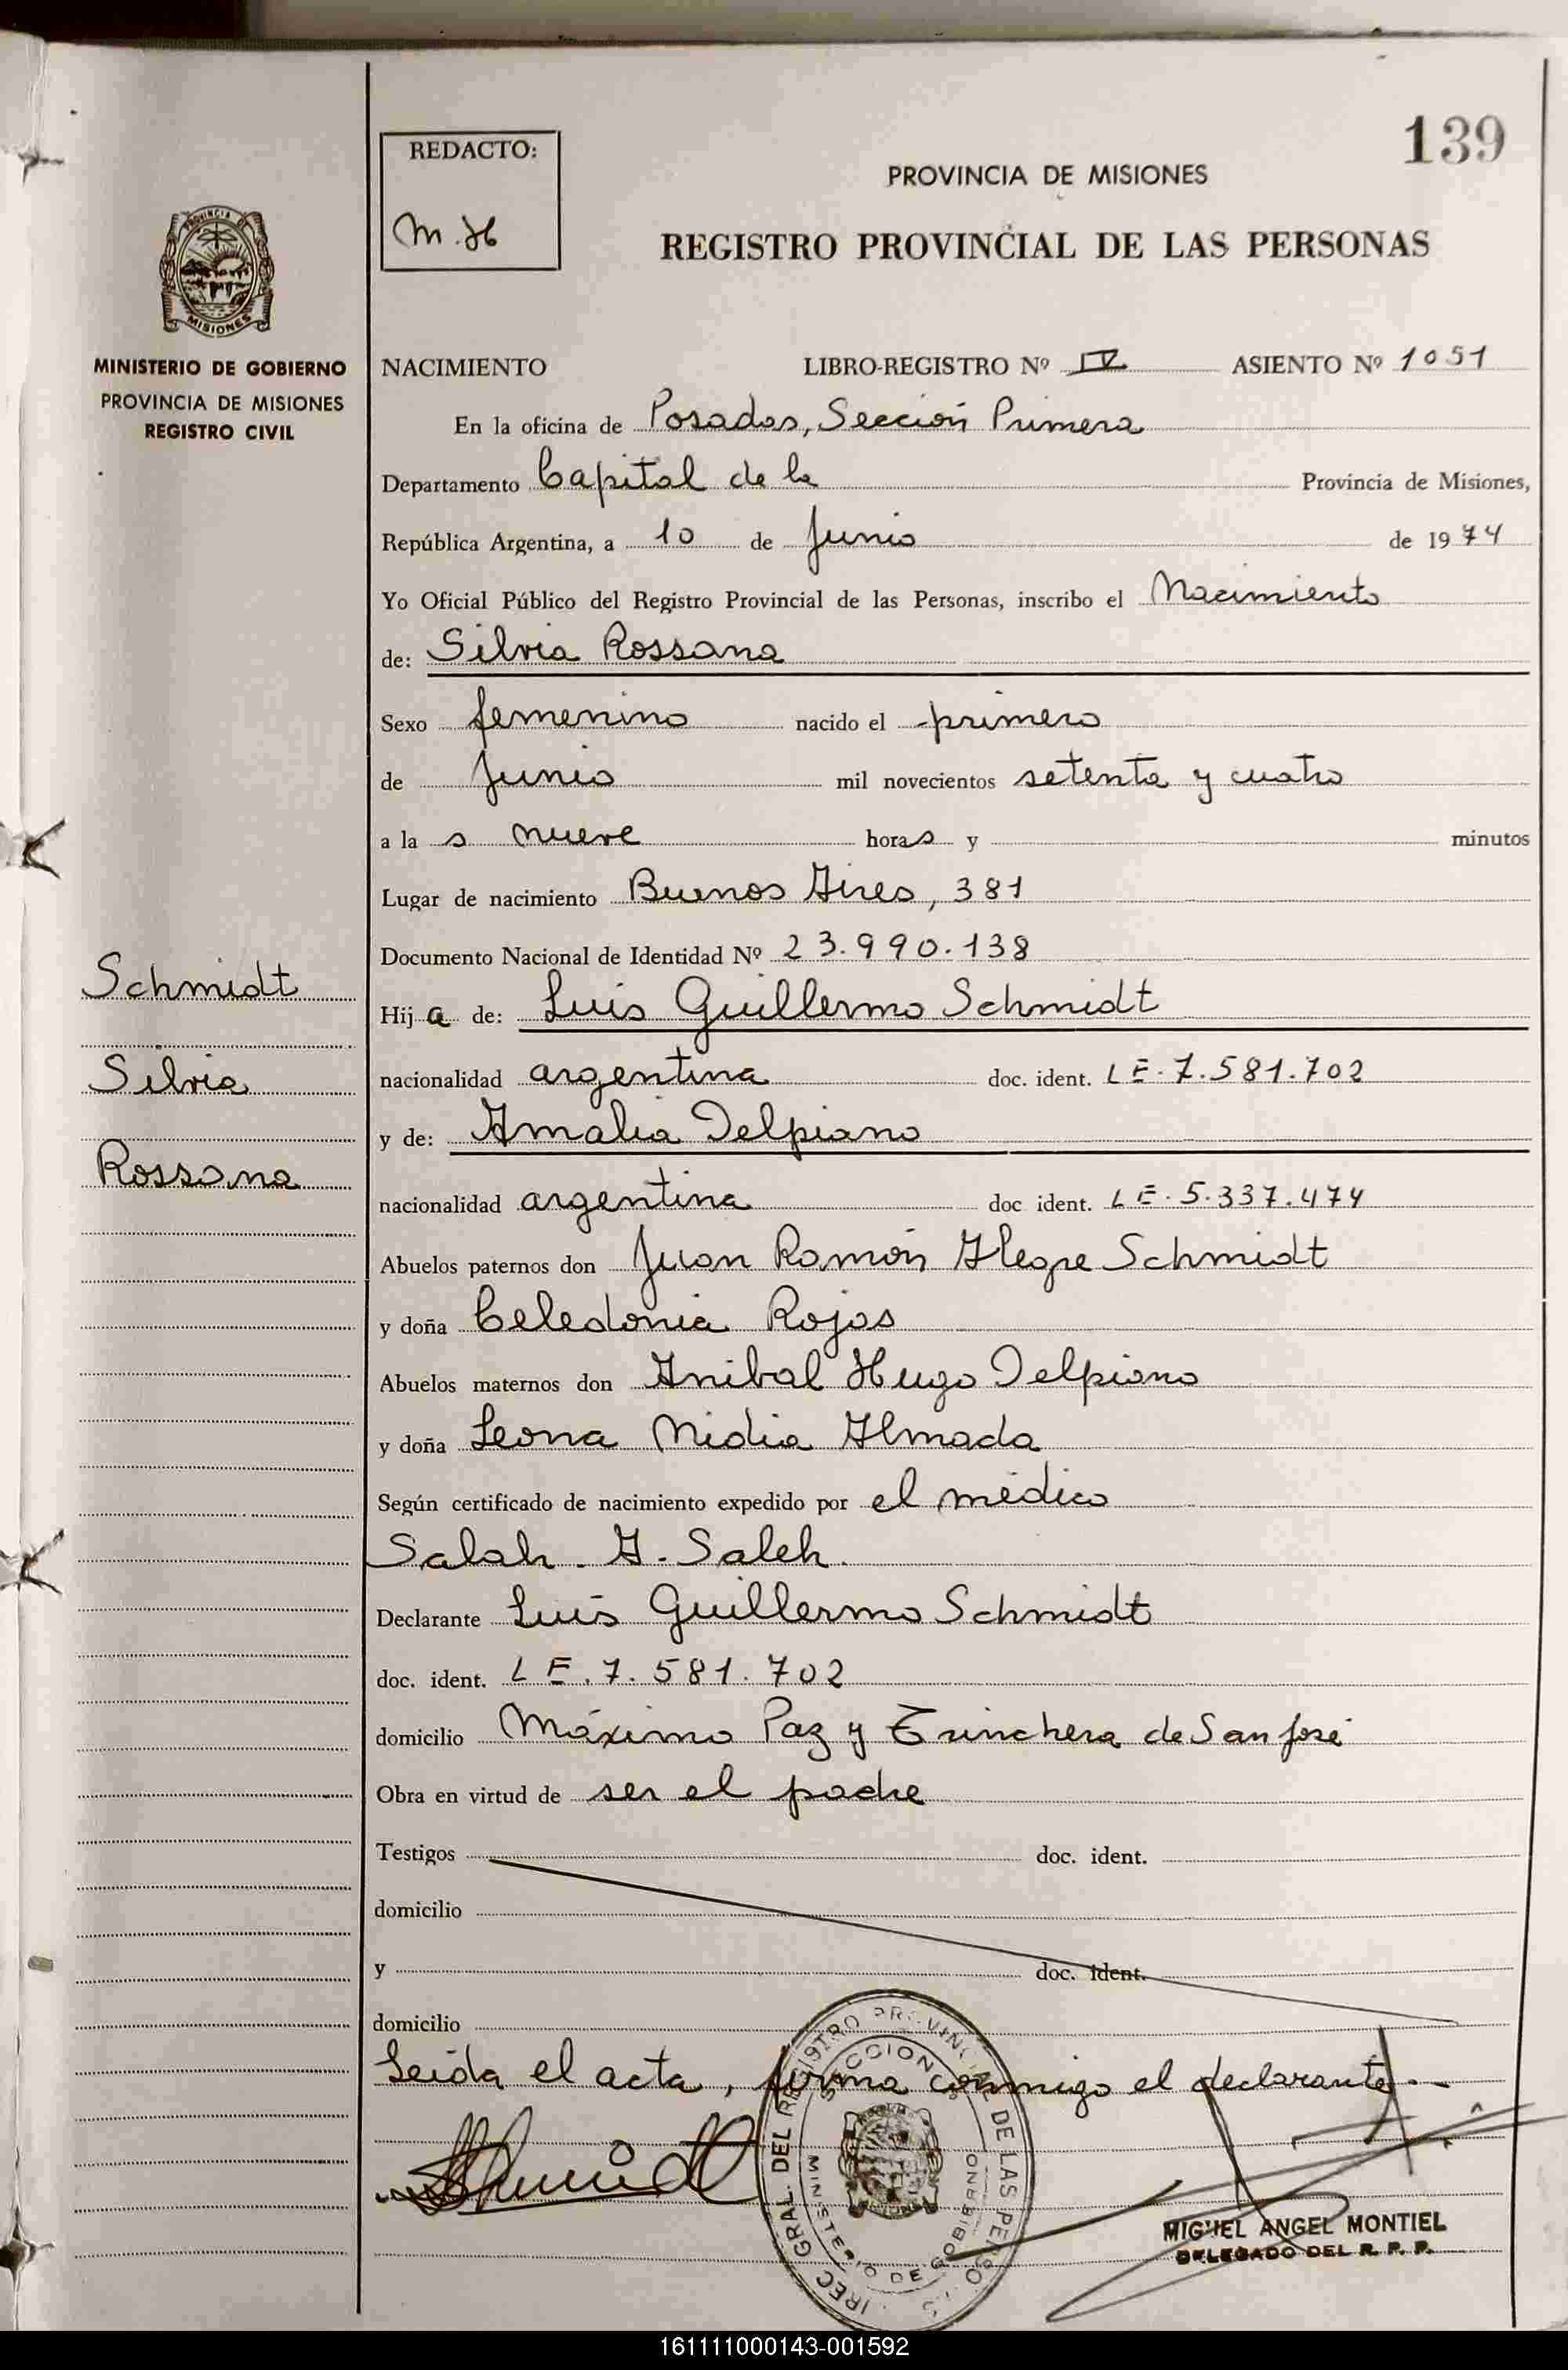 139
REDACTO:
M.H
PROVINCIA DE MISIONES
REGISTRO PROVINCIAL DE LAS PERSONAS
PROVINCIA DE
MISIONES
MINISTERIO DE GOBIERNO
PROVINCIA DE MISIONES
REGISTRO CIVIL
NACIMIENTO LIBRO-REGISTRO Nº IV ASIENTO Nº 1051
En la oficina de Posadas, Sección Primera
Departamento Capital de la Provincia de Misiones,
República Argentina, a 10 de Junio de 1974
Yo Oficial Público del Registro Provincial de las Personas, inscribo el Nacimiento
de: Silvia Rossana
Sexo femenino nacido el primero
de Junio mil novecientos setenta y cuatro
a la s nueve horas y minutos
Lugar de nacimiento Buenos Aires, 381
Documento Nacional de Identidad Nº 23.990.138
Schmidt
Silvia
Rossana
Hija de: Luis Guillermo Schmidt
nacionalidad argentina doc. ident. LE. 7.581.702
y de: Amalia Delpiano
nacionalidad argentina doc ident. LE. 5.337.474
Abuelos paternos don Juan Ramón Alegre Schmidt
y doña Celedonia Rojas
Abuelos maternos don Anibal Hugo Delpiano
y doña Leona Nidia Almada
Según certificado de nacimiento expedido por el médico
Salah. A. Saleh.
Declarante Luis Guillermo Schmidt
doc. ident. LE. 7.581.702
domicilio Máximo Paz y Trinchera de San José
Obra en virtud de ser el padre
Testigos doc. ident.
domicilio
y doc. ident.
domicilio
Leida el acta, firma conmigo el declarante.-
Schmidt
IREC GRAL. DEL REGISTRO PROVINCIAL DE LAS PERSO
SECCION
MINISTERIO DE GOBIERNO
MIGUEL ANGEL MONTIEL
DELEGADO DEL R. P. P.
161111000143-001592